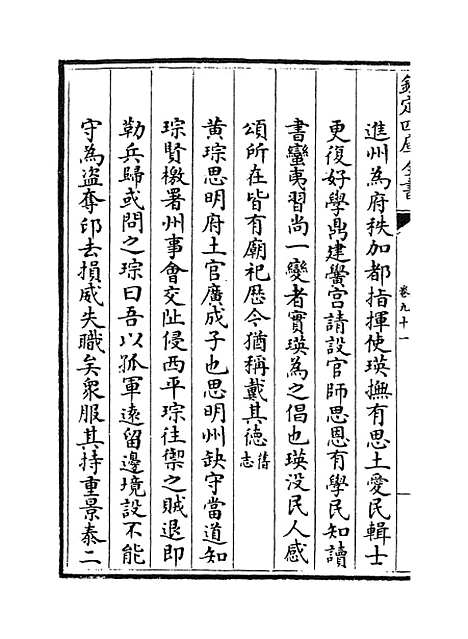 欽定四庫全書
卷九十一
進州為府秩加都指揮使瑛撫有思土愛民輯士
更復好學鼎建黌宫請設官師思恩有學民知讀
書蠻夷習尚一變者實瑛為之倡也瑛没民人感
頌所在皆有廟祀歴今猶稱戴其徳舊志
黄琮思明府土官廣成子也思明州缺守當道知
琮賢檄署州事㑹交阯侵西平琮往禦之賊退即
勒兵歸或問之琮曰吾以孤軍遠留邊境設不能
守為盜奪印去損威失職矣衆服其持重景泰二